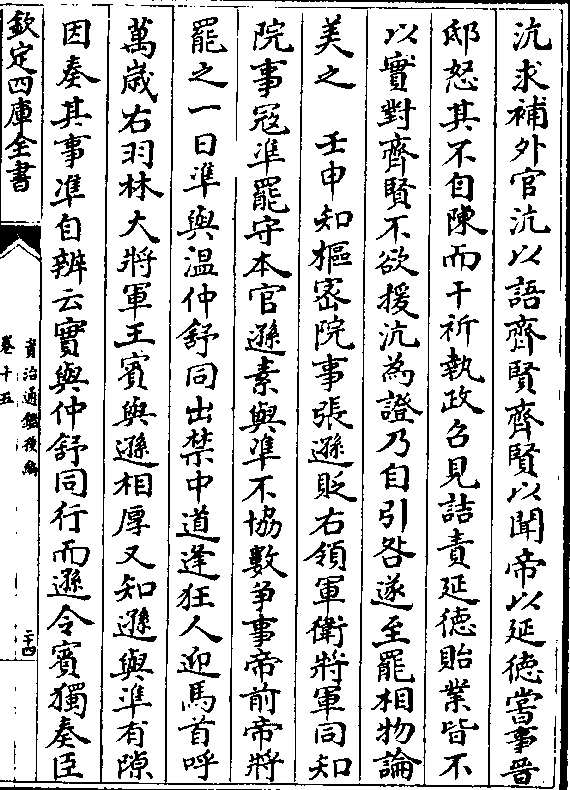 沆求補外官沆以語齊賢齊賢以聞帝以延徳嘗事晉
邸怒其不自陳而干祈執政召見詰責延徳貽業皆不
以實對齊賢不欲援沆為證乃自引咎遂至罷相物論
美之　壬申知樞宻院事張遜貶右領軍衛將軍同知
院事寇準罷守本官遜素與準不協數爭事帝前帝將
罷之一日準與温仲舒同出禁中道逢狂人迎馬首呼
萬歳右羽林大將軍王賓與遜相厚又知遜與準有隙
因奏其事準自辨云實與仲舒同行而遜令賓獨奏臣
欽定四庫全書
資治通鑑後編
卷十五
二十四